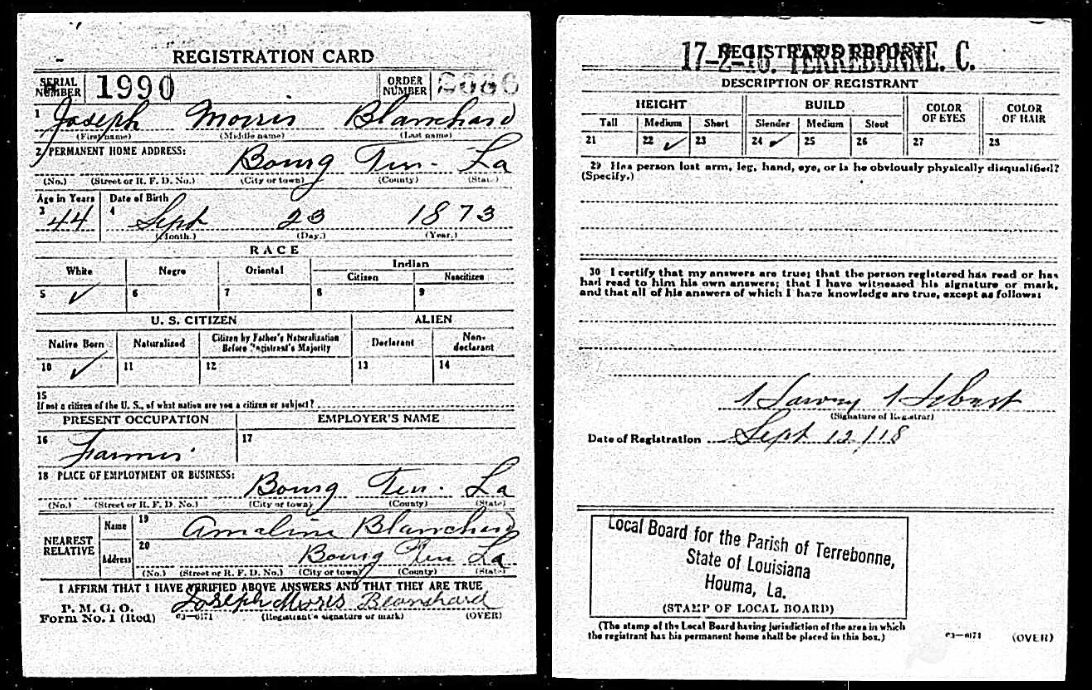 REGISTRATION CARD
SERIAL NUMBER 1990 ORDER NUMBER
1 Joseph Morris Blanchard
(First name) (Middle name) (Last name)
2 PERMANENT HOME ADDRESS: Bourg Terr. La
(No.) (Street or R. F. D. No.) (City or town) (County) (State)
Age in Years Date of Birth
3 44 4 Sept 23 1873
(Month.) (Day.) (Year.)
RACE
White Negro Oriental Indian
Citizen Noncitizen
5 ✓ 6 7 8 9
U. S. CITIZEN ALIEN
Native Born Naturalized Citizen by Father's Naturalization Before Registrant's Majority Declarant Non-declarant
10 ✓ 11 12 13 14
15
If not a citizen of the U. S., of what nation are you a citizen or subject?
PRESENT OCCUPATION EMPLOYER'S NAME
16 Farmer 17
18 PLACE OF EMPLOYMENT OR BUSINESS:
Bourg Terr. La
(No.) (Street or R. F. D. No.) (City or town) (County) (State)
NEAREST RELATIVE Name 19 Amaline Blanchard
Address 20 Bourg Terr La
(No.) (Street or R. F. D. No.) (City or town) (County) (State)
I AFFIRM THAT I HAVE VERIFIED ABOVE ANSWERS AND THAT THEY ARE TRUE
P. M. G. O.
Form No. 1 (Red) 03—6171 Joseph Morris Blanchard
(Registrant's signature or mark) (OVER)
REGISTRAR'S REPORT
17-2-16. TERREBONNE. C.
DESCRIPTION OF REGISTRANT
HEIGHT BUILD COLOR OF EYES COLOR OF HAIR
Tall Medium Short Slender Medium Stout
21 22 ✓ 23 24 ✓ 25 26 27 28
29 Has person lost arm, leg, hand, eye, or is he obviously physically disqualified?
(Specify.)
30 I certify that my answers are true; that the person registered has read or has
had read to him his own answers; that I have witnessed his signature or mark,
and that all of his answers of which I have knowledge are true, except as follows:
(Signature of Registrar)
Date of Registration Sept 12/18
Local Board for the Parish of Terrebonne,
State of Louisiana
Houma, La.
(STAMP OF LOCAL BOARD)
(The stamp of the Local Board having jurisdiction of the area in which
the registrant has his permanent home shall be placed in this box.)
03—6171 (OVER)